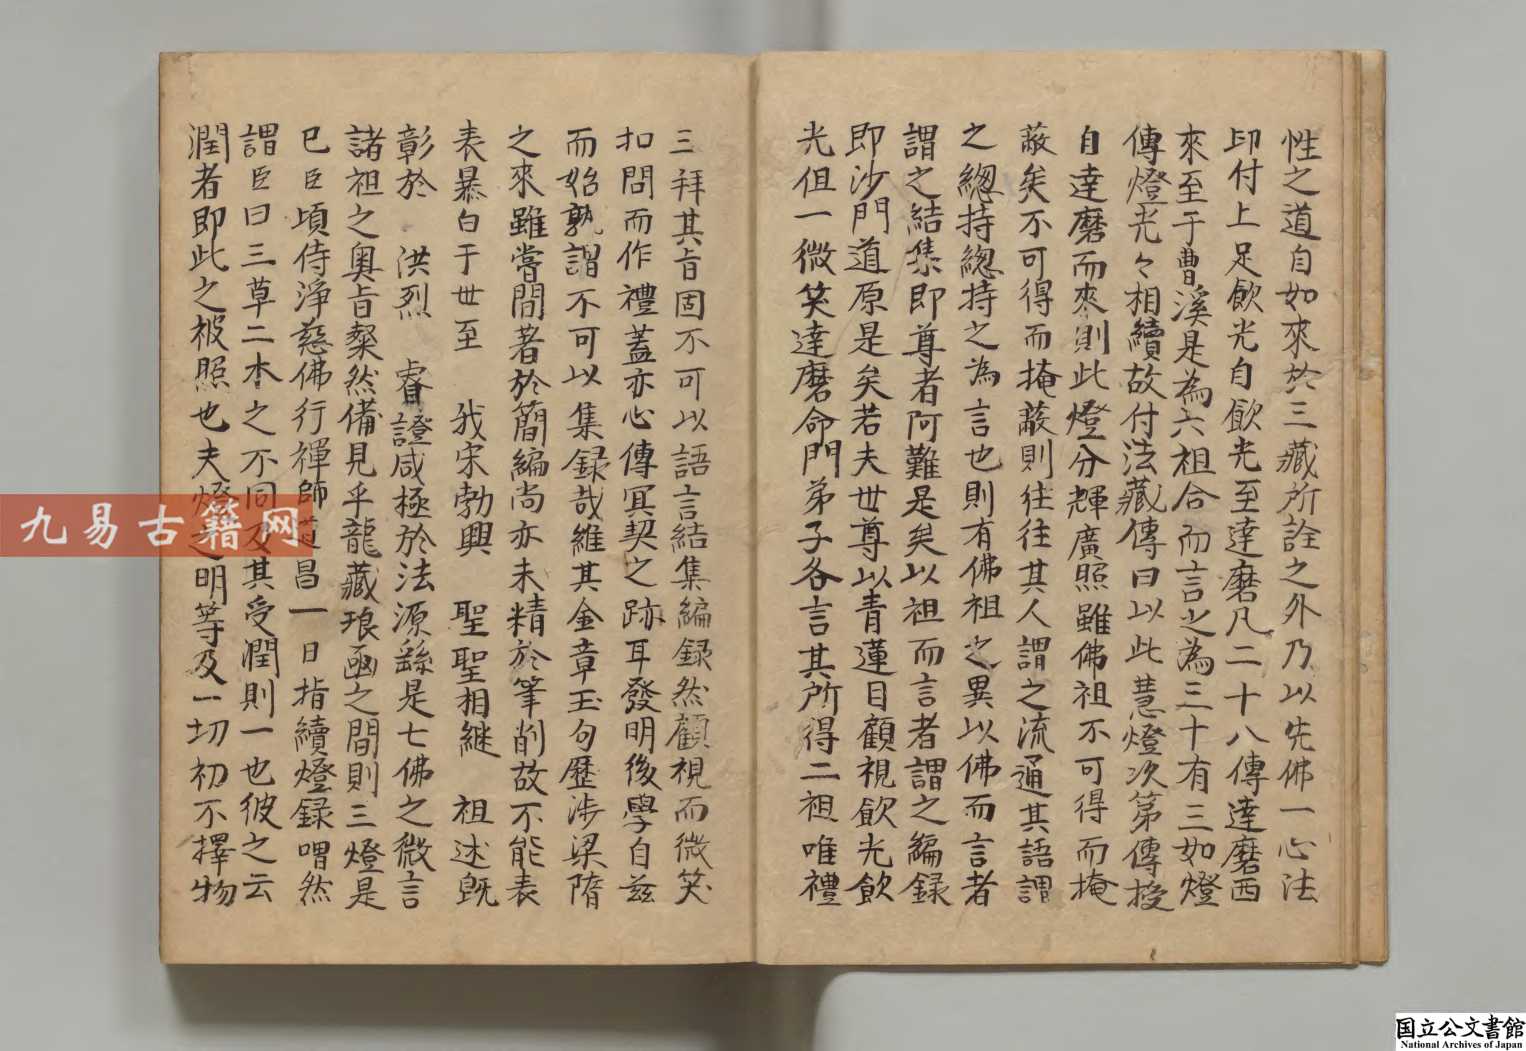 性之道自如來於三藏所詮之外乃以先佛一心法
印付上足飲光自飲光至達磨凡二十八傳達磨西
來至于曹溪是為六祖合而言之為三十有三如燈
傳燈光々相續故付法藏傳曰以此慧燈次第傳授
自達磨而來則此燈分輝廣照雖佛祖不可得而掩
蔽矣不可得而掩蔽則往往其人謂之流通其語謂
之總持總持之為言也則有佛祖之異以佛而言者
謂之結集即尊者阿難是矣以祖而言者謂之編録
即沙門道原是矣若夫世尊以青蓮目顧視飲光飲
光但一微笑達磨命門弟子各言其所得二祖唯禮
三拜其旨固不可以語言結集編録然顧視而微笑
扣問而作禮蓋亦心傳冥契之跡耳發明後學自茲
而始孰謂不可以集録哉維其金章玉句歷涉梁隋
之來雖嘗間著於簡編尚亦未精於筆削故不能表
表暴白于世至 我宋勃興 聖聖相継 祖述既
彰於 洪烈 睿證咸極於法源繇是七佛之微言
諸祖之奧旨粲然備見乎龍藏琅函之間則三燈是
已臣頃侍淨慈佛行禪師道昌一日指續燈録喟然
謂臣曰三草二木之不同及其受潤則一也彼之云
潤者即此之被照也夫燈之明等及一切初不擇物
九易古籍网
国立公文書館
National Archives of Japan